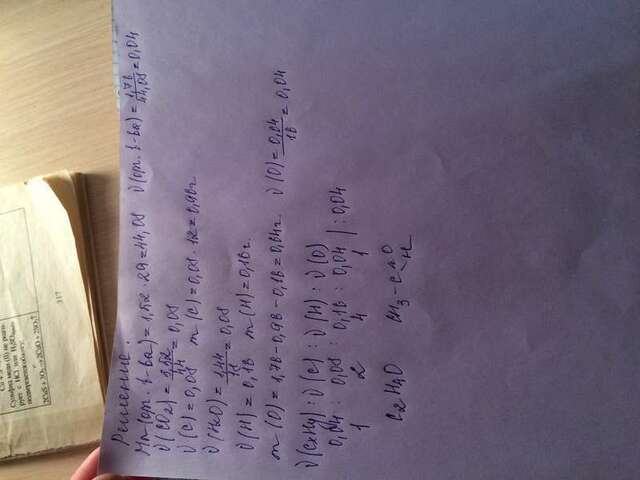 Сульфид меди (II) не реаги-
рует с HCl или H₂SO₄
подвергается обжигу:
2CuS+3O₂→2CuO+2SO₂↑
317
Решение.
Mr(орг. в-ва)=1,52·29=44,08 ν(орг. в-ва)=1,76/44,08=0,04
ν(CO2)=3,52/44=0,08
ν(C)=0,08 m(C)=0,08·12=0,96г
ν(H2O)=1,44/18=0,08
ν(H)=0,16 m(H)=0,16г.
m(O)=1,76-0,96-0,16=0,64г. ν(O)=0,64/16=0,04
ν(CxHy):ν(C):ν(H):ν(O)
0,04 : 0,08 : 0,16 : 0,04 | :0,04
1 2 4 1
C2H4O CH3-C=O
-H